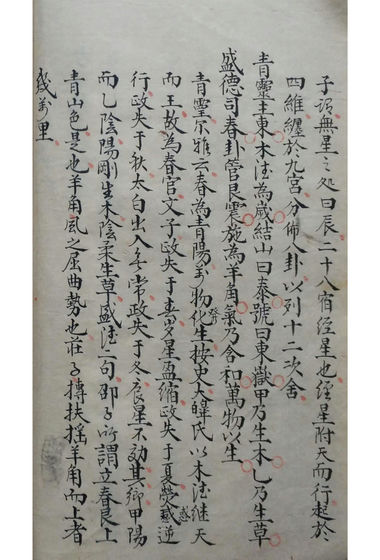 子謂無星之処曰辰二十八宿經星也經星附天而行起於
四維纏於九宮分佈八卦以列十二次舍
青靈主東木德為歲結山曰泰號曰東嶽甲乃生木乙乃生草
盛德司春卦管艮震施為羊角氣乃含和萬物以生
青靈尔雅云春為青陽万物化生按史大皥氏以木德継天
而王故為春官文子政失于春歲星盈縮政失于夏熒惑逆
行政失于秋太白出入無常政失于冬辰星不効其鄉甲陽
而乙陰陽剛生木陰柔生草盛德二句邵子所謂立春艮上
青山色是也羊角風之屈曲勢也莊子摶扶搖羊角而上者
幾萬里